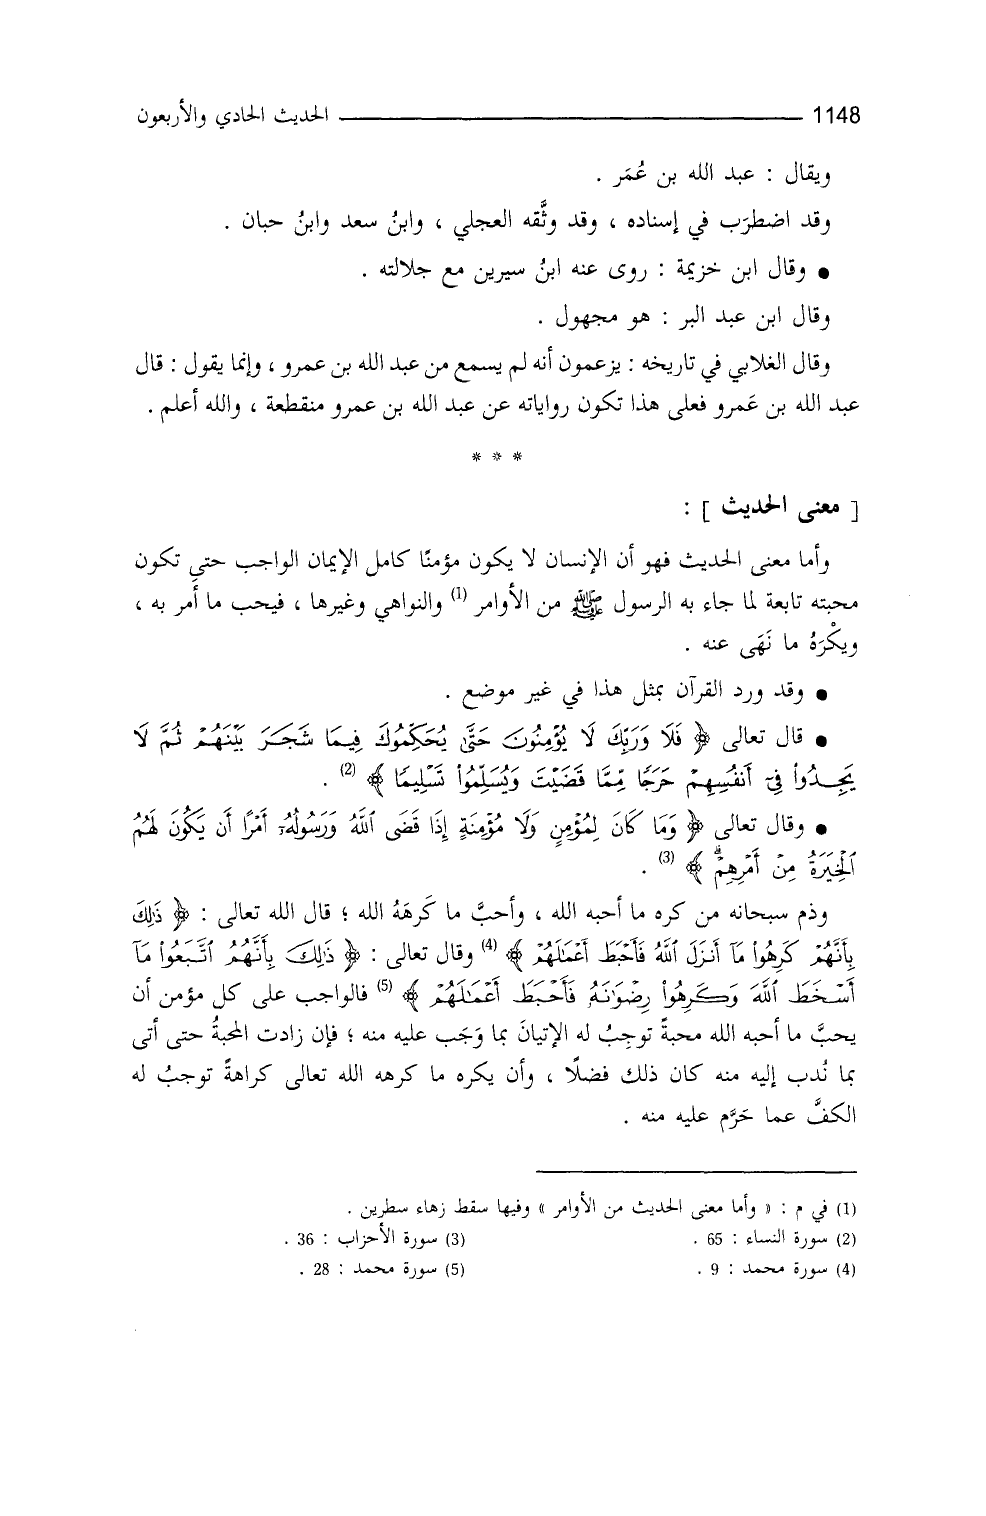 1148 الحديث الحادي والأربعون
ويقال : عبد الله بن عُمَر .
وقد اضطرَب في إسناده ، وقد وثَّقه العجلي ، وابنُ سعد وابنُ حبان .
● وقال ابن خزيمة : روى عنه ابنُ سيرين مع جلالته .
وقال ابن عبد البر : هو مجهول .
وقال الغلابي في تاريخه : يزعمون أنه لم يسمع من عبد الله بن عمرو ، وإنما يقول : قال
عبد الله بن عَمرو فعلى هذا تكون رواياته عن عبد الله بن عمرو منقطعة ، والله أعلم .
* * *
[ معنى الحديث ] :
وأما معنى الحديث فهو أن الإنسان لا يكون مؤمنًا كامل الإيمان الواجب حتى تكون
محبته تابعة لما جاء به الرسول ﷺ من الأوامر (1) والنواهي وغيرها ، فيحب ما أمر به ،
ويكْرَهُ ما نَهَى عنه .
● وقد ورد القرآن بمثل هذا في غير موضع .
● قال تعالى ﴿ فَلَا وَرَبِّكَ لَا يُؤْمِنُونَ حَتَّىٰ يُحَكِّمُوكَ فِيمَا شَجَرَ بَيْنَهُمْ ثُمَّ لَا
يَجِدُوا۟ فِىٓ أَنفُسِهِمْ حَرَجًا مِّمَّا قَضَيْتَ وَيُسَلِّمُوا۟ تَسْلِيمًا ﴾ (2) .
● وقال تعالى ﴿ وَمَا كَانَ لِمُؤْمِنٍ وَلَا مُؤْمِنَةٍ إِذَا قَضَى ٱللَّهُ وَرَسُولُهُۥٓ أَمْرًا أَن يَكُونَ لَهُمُ
ٱلْخِيَرَةُ مِنْ أَمْرِهِمْ ۗ ﴾ (3) .
وذم سبحانه من كره ما أحبه الله ، وأحبَّ ما كَرِهَهُ الله ؛ قال الله تعالى : ﴿ ذَٰلِكَ
بِأَنَّهُمْ كَرِهُوا۟ مَآ أَنزَلَ ٱللَّهُ فَأَحْبَطَ أَعْمَـٰلَهُمْ ﴾ (4) وقال تعالى : ﴿ ذَٰلِكَ بِأَنَّهُمُ ٱتَّبَعُوا۟ مَآ
أَسْخَطَ ٱللَّهَ وَكَرِهُوا۟ رِضْوَٰنَهُۥ فَأَحْبَطَ أَعْمَـٰلَهُمْ ﴾ (5) فالواجب على كل مؤمن أن
يحبَّ ما أحبه الله محبةً توجِبُ له الإتيانَ بما وَجَب عليه منه ؛ فإن زادت المحبةُ حتى أتى
بما نُدب إليه منه كان ذلك فضلًا ، وأن يكره ما كرهه الله تعالى كراهةً توجبُ له
الكفَّ عما حَرَّم عليه منه .
(1) في م : « وأما معنى الحديث من الأوامر » وفيها سقط زهاء سطرين .
(2) سورة النساء : 65 . (3) سورة الأحزاب : 36 .
(4) سورة محمد : 9 . (5) سورة محمد : 28 .